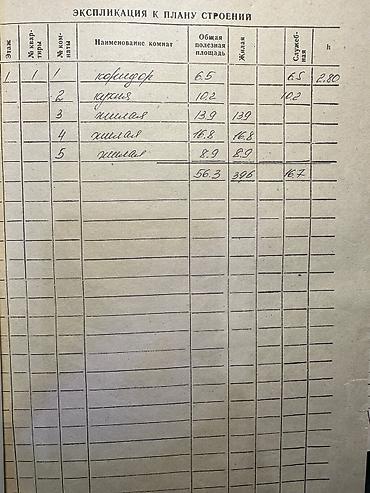 ЭКСПЛИКАЦИЯ К ПЛАНУ СТРОЕНИЙ
Этаж | № квар- тиры | № ком- наты | Наименование комнат | Общая полезная площадь | Жилая | Служеб- ная | h
1 1 1 коридор 6.5 6.5 2.80
2 кухня 10.2 10.2
3 жилая 13.9 13.9
4 жилая 16.8 16.8
5 жилая 8.9 8.9
56.3 39.6 16.7